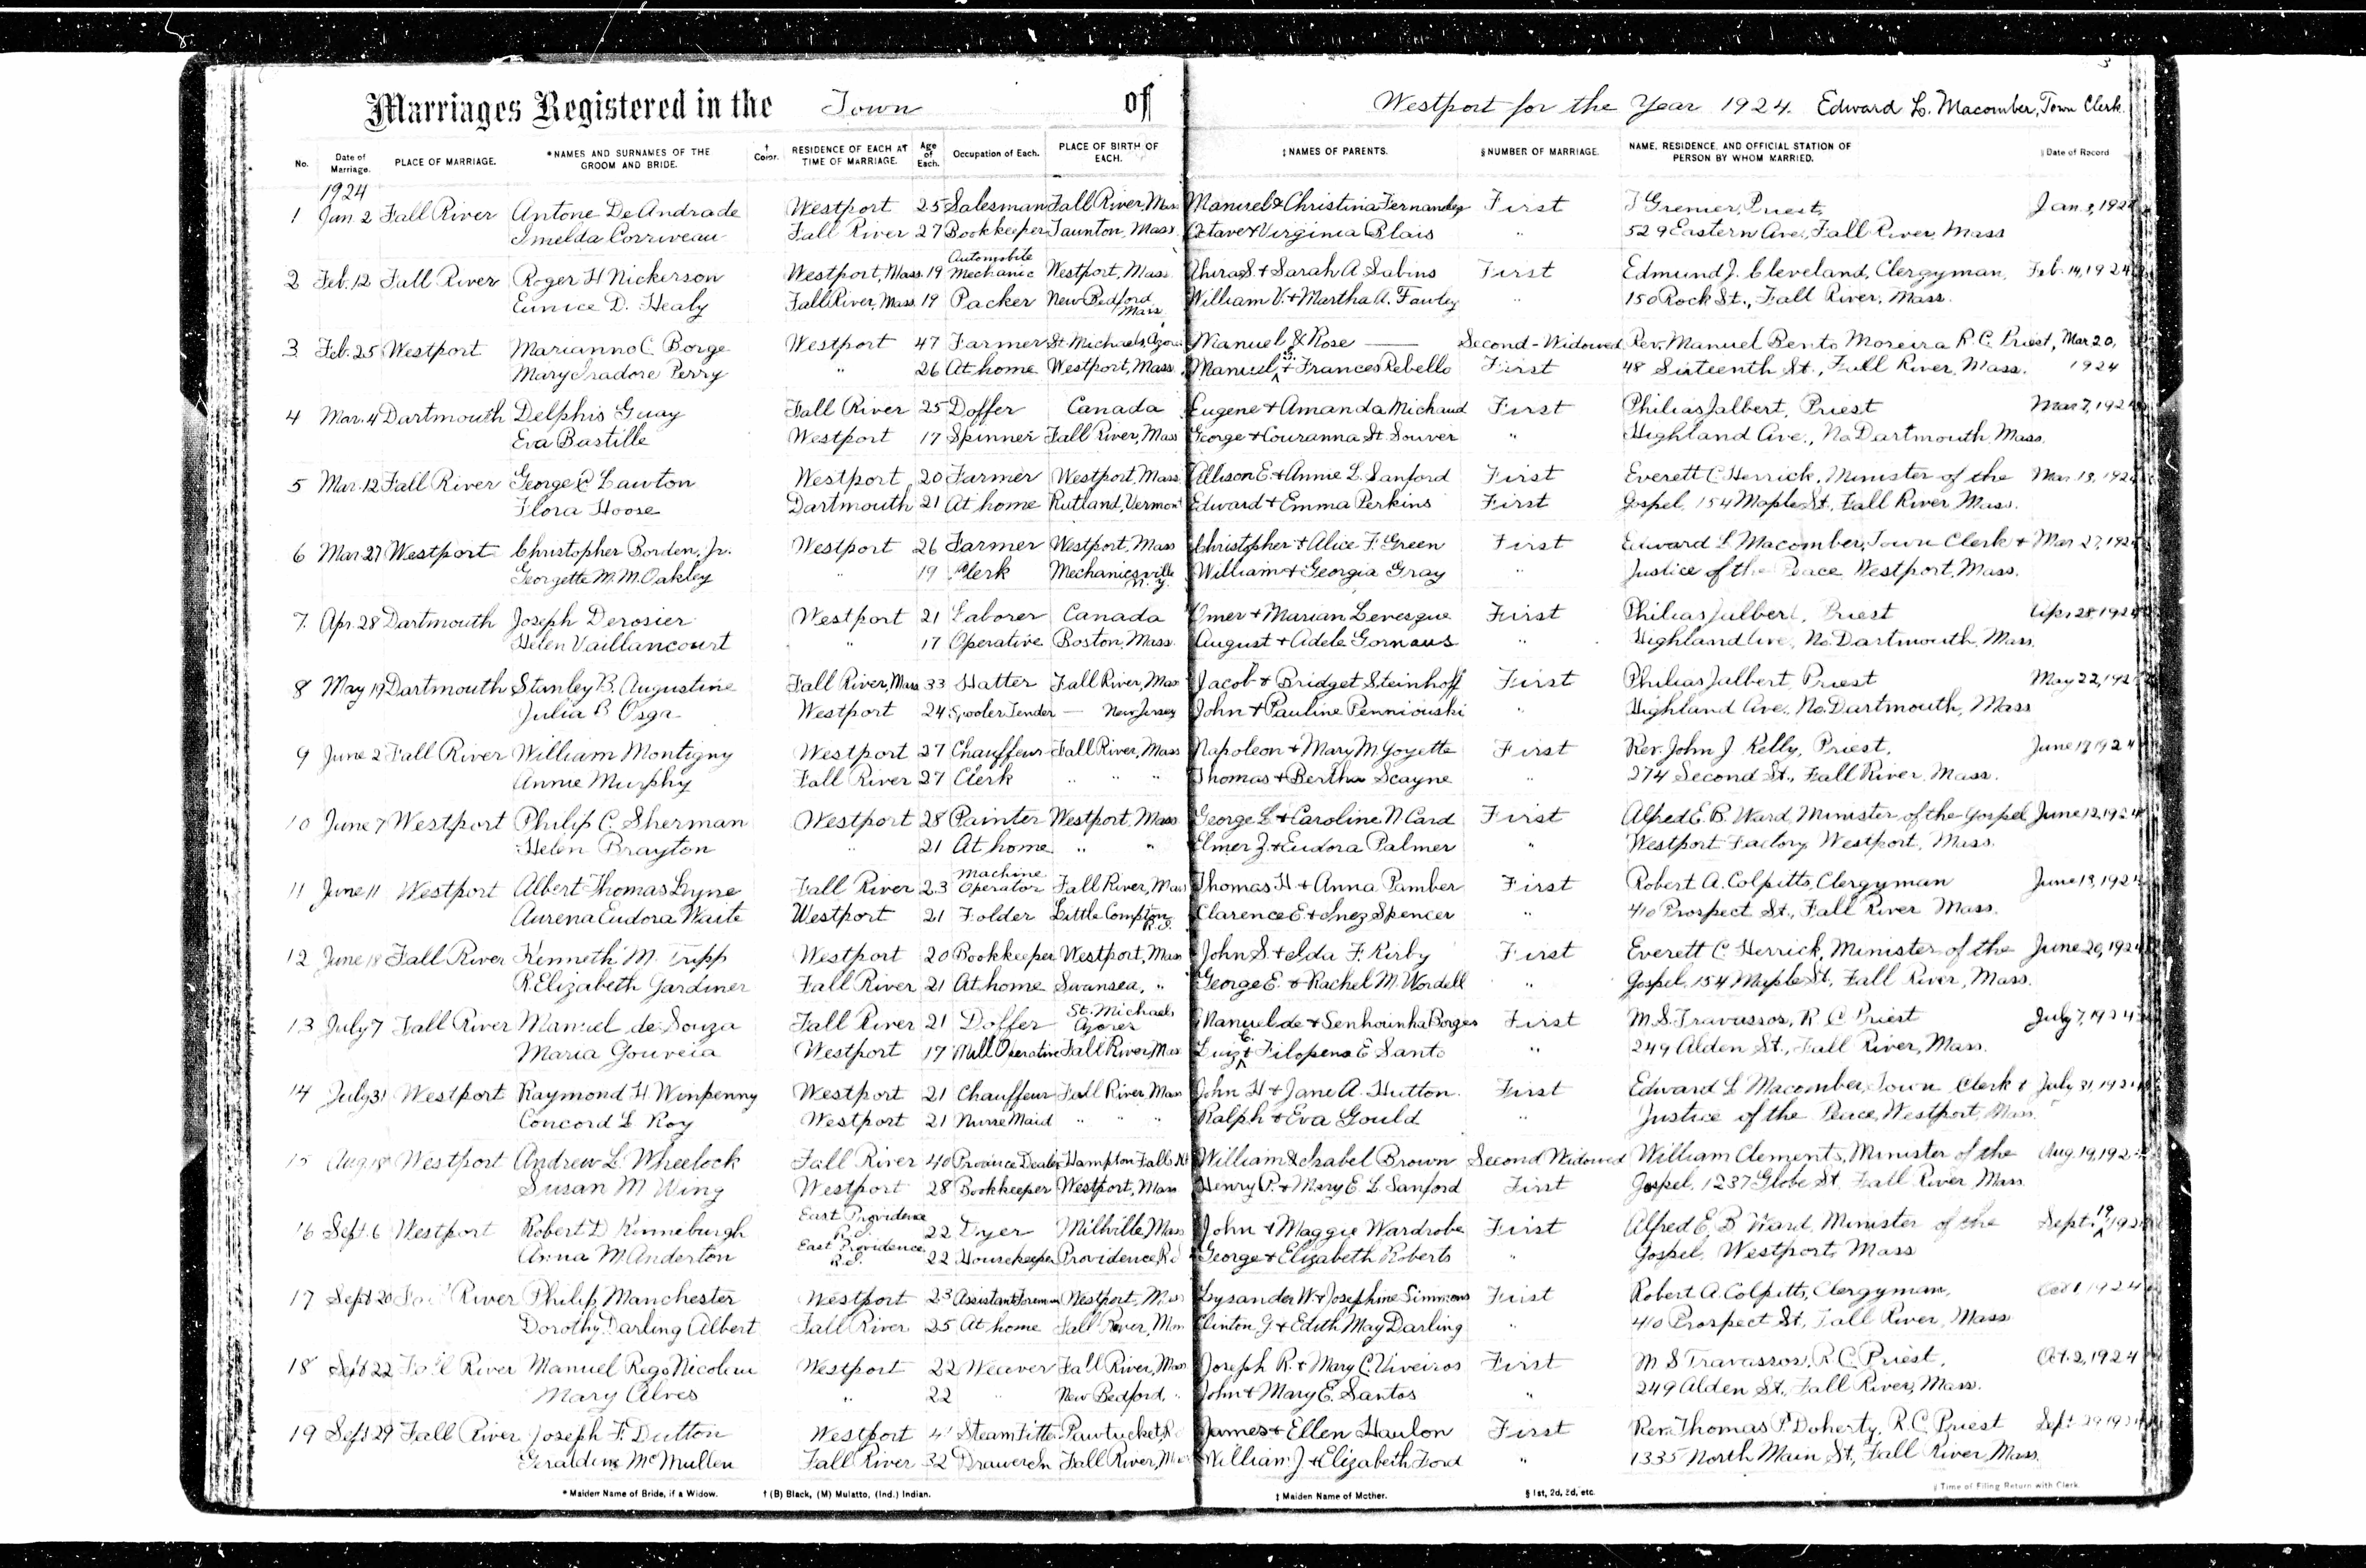 3
Marriages Registered in the Town of Westport for the Year 1924. Edward L. Macomber, Town Clerk.
No. Date of Marriage. PLACE OF MARRIAGE. *NAMES AND SURNAMES OF THE GROOM AND BRIDE. † Color. RESIDENCE OF EACH AT TIME OF MARRIAGE. Age of Each. Occupation of Each. PLACE OF BIRTH OF EACH. ‡NAMES OF PARENTS. §NUMBER OF MARRIAGE. NAME, RESIDENCE, AND OFFICIAL STATION OF PERSON BY WHOM MARRIED. ‖Date of Record
1924
1 Jan. 2 Fall River Antone De Andrade Westport 25 Salesman Fall River, Mass. Manuel & Christina Fernandes First Grenier, Priest, Jan. 3, 1924
Imelda Corriveau Fall River 27 Bookkeeper Taunton, Mass. Octave & Virginia Blais " 529 Eastern Ave., Fall River, Mass
2 Feb. 12 Fall River Roger H Nickerson Westport, Mass. 19 Automobile Mechanic Westport, Mass. Ahira S. + Sarah A. Sabins First Edmund J. Cleveland, Clergyman, Feb. 14, 1924
Eunice D. Healy Fall River, Mass. 19 Packer New Bedford Mass. William V. + Martha A. Fawley " 150 Rock St., Fall River, Mass.
3 Feb. 25 Westport Marianno C. Borge Westport 47 Farmer St Michaels, Manuel & Rose — Second-Widowed Rev. Manuel Bento Moreira R.C. Priest, Mar 20,
Mary Isadore Perry " 26 At home Westport, Mass. Manuel S. + Frances Rebello First 48 Sixteenth St., Fall River, Mass. 1924
4 Mar. 4 Dartmouth Delphis Guay Fall River 25 Doffer Canada Eugene + Amanda Michaud First Philias Jalbert, Priest Mar 7, 1924
Eva Bastille Westport 17 Spinner Fall River, Mass George + Couranna St. Souver " Highland Ave., No. Dartmouth, Mass.
5 Mar. 12 Fall River George C Lawton Westport 20 Farmer Westport, Mass Allison E. + Annie L. Sanford First Everett C. Herrick, Minister of the Mar. 13, 1924
Flora Hoose Dartmouth 21 At home Rutland, Vermont Edward + Emma Perkins First Gospel, 154 Maple St., Fall River, Mass.
6 Mar 27 Westport Christopher Borden, Jr. Westport 26 Farmer Westport, Mass Christopher + Alice F. Green First Edward L Macomber, Town Clerk + Mar 27, 1924
Georgette M. M. Oakley " 19 Clerk Mechanicsville N.Y. William + Georgia Gray " Justice of the Peace, Westport, Mass.
7. Apr. 28 Dartmouth Joseph Derosier Westport 21 Laborer Canada Omer + Marian Levesque First Philias Jalbert, Priest Apr. 28, 1924
Helen Vaillancourt " 17 Operative Boston, Mass. August + Adele Gornaus " Highland Ave, No. Dartmouth, Mass.
8 May 19 Dartmouth Stanley B. Augustine Fall River, Mass 33 Hatter Fall River, Mass Jacob + Bridget Steinhoff First Philias Jalbert, Priest May 22, 1924
Julia B Osga Westport 24 Spooler Tender — New Jersey John + Pauline Penniouski " Highland Ave. No. Dartmouth, Mass
9 June 2 Fall River William Montigny Westport 27 Chauffeur Fall River, Mass Napoleon + Mary M. Goyette First Rev. John J. Kelly, Priest. June 17 1924
Annie Murphy Fall River 27 Clerk " " " Thomas + Bertha Scayne " 274 Second St., Fall River, Mass.
10 June 7 Westport Philip C. Sherman Westport 28 Painter Westport, Mass George L + Caroline N. Card First Alfred E. B. Ward, Minister of the Gospel June 12, 1924
Helen Brayton " 21 At home " " Elmer Z. + Eudora Palmer " Westport Factory Westport, Mass.
11 June 11 Westport Albert Thomas Lyne Fall River 23 Machine Operator Fall River, Mass Thomas H. + Anna Pamber First Robert A. Colpitts, Clergyman June 13, 1924
Aurena Eudora Waite Westport 21 Folder Little Compton R.I. Clarence E. + Inez Spencer " 410 Prospect St., Fall River Mass.
12 June 18 Fall River Kenneth M. Tripp Westport 20 Bookkeeper Westport, Mass John S. + Elda F. Kirby First Everett C. Herrick, Minister of the June 20, 1924
R. Elizabeth Gardiner Fall River 21 At home Swansea, " George E. & Rachel M. Wordell " Gospel, 154 Maple St., Fall River, Mass.
13 July 7 Fall River Manuel de Souza Fall River 21 Doffer St. Michaels Azores Manuel de + Senhouinha Borges First M. S. Travassos, R C Priest July 7, 1924
Maria Gouveia Westport 17 Mill Operative Fall River, Mass Luiz E. + Filopena E Santo " 249 Alden St., Fall River, Mass.
14 July 31 Westport Raymond H. Winpenny Westport 21 Chauffeur Fall River, Mass John H + Jane A. Hutton. First Edward L Macomber, Town Clerk & July 31, 1924
Concord L. Roy Westport 21 Nurse Maid " " " Ralph + Eva Gould " Justice of the Peace, Westport, Mass.
15 Aug 18 Westport Andrew L. Wheelock Fall River 40 Produce Dealer Hampton Falls N.H. William & Isabel Brown Second Widowed William Clements, Minister of the Aug. 19, 192
Susan M Wing Westport 28 Bookkeeper Westport, Mass Henry P. + Mary E. L. Sanford First Gospel, 1237 Globe St, Fall River Mass.
16 Sept. 6 Westport Robert D Kinneburgh East Providence R.I. 22 Dyer Millville, Mass John + Maggie Wardrobe First Alfred E. B Ward, Minister of the Sept. 19, 1924
Anna M Anderton East Providence, R.I. 22 Housekeeper Providence, R.I George + Elizabeth Roberts " Gospel, Westport, Mass
17 Sept 20 Fall River Philip Manchester Westport 23 Assistant Foreman Westport, Mass Lysander W. + Josephine Simmons First Robert A. Colpitts, Clergyman, Oct 1 1924
Dorothy Darling Albert Fall River 25 At home Fall River, Mass Clinton J + Edith May Darling " 410 Prospect St., Fall River, Mass
18 Sept 22 Fall River Manuel Rego Nicolau Westport 22 Weaver Fall River, Mass Joseph R. + Mary C. Viveiros First M S Travassos, R.C. Priest, Oct. 2, 1924
Mary Alves " 22 " New Bedford, " John + Mary E. Santos " 249 Alden St., Fall River, Mass.
19 Sept 29 Fall River Joseph F. Dutton Westport Steam Fitter Pawtucket, R James + Ellen Hanlon First Rev. Thomas P. Doherty, R.C. Priest Sept. 29 1924
Geraldine McMullen Fall River 32 Fall River, Mass William J + Elizabeth Ford " 1335 North Main St., Fall River, Mass.
* Maiden Name of Bride, if a Widow. † (B) Black, (M) Mulatto, (Ind.) Indian. ‡ Maiden Name of Mother. § 1st, 2d, 3d, etc. ‖ Time of Filing Return with Clerk.